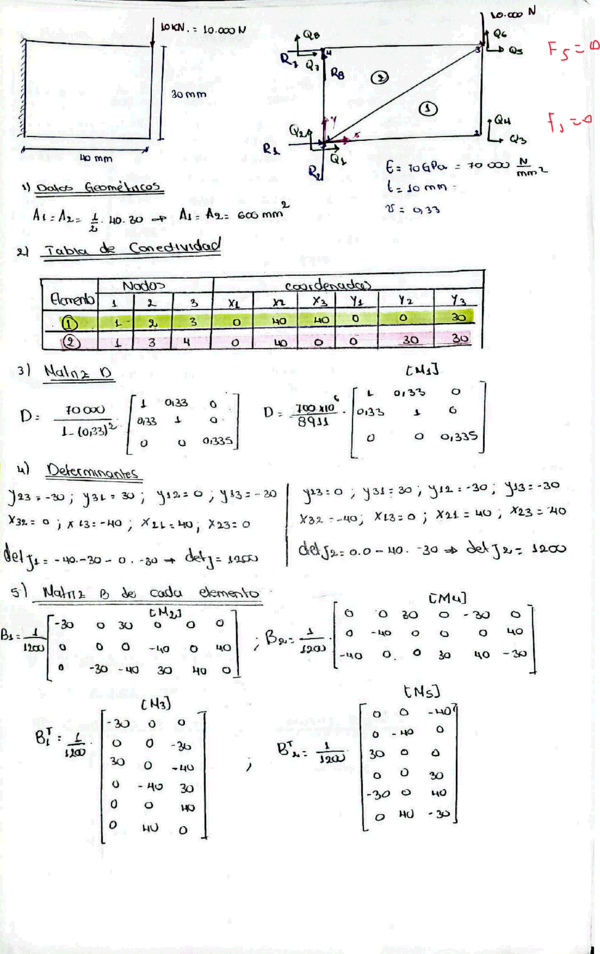 10kN. = 10.000 N
30 mm
40 mm
10.000 N
Q8
Q6
R7
Q7
4
R8
3
Q5
F5=0
②
①
Q2
Y
x
Q4
F3=0
R1
1
Q1
2
Q3
R2
E= 70GPa = 70 000 N/mm²
t= 10 mm
v = 0,33
1) Datos Geométricos
A1 = A2 = 1/2 · 40 · 30 → A1 = A2 = 600 mm²
2) Tabla de Conectividad
Nodos coordenadas
Elemento 1 2 3 X1 X2 X3 Y1 Y2 Y3
① 1 2 3 0 40 40 0 0 30
② 1 3 4 0 40 0 0 30 30
3) Matriz D
[M1]
D = 70000/1-(0,33)² [1 0,33 0
0,33 1 0
0 0 0,335]
D = 700x10⁶/8911 · [1 0,33 0
0,33 1 0
0 0 0,335]
4) Determinantes
y23 = -30 ; y31 = 30 ; y12 = 0 ; y13 = -30
x32 = 0 ; x13 = -40 ; x21 = 40 ; x23 = 0
det j1 = -40.-30 - 0. -30 ⇒ det j = 1200
y23 = 0 ; y31 = 30 ; y12 = -30 ; y13 = -30
x32 = -40 ; x13 = 0 ; x21 = 40 ; x23 = 40
det j2 = 0.0 - 40. -30 ⇒ det j2 = 1200
5) Matriz B de cada elemento
[M2]
B1 = 1/1200 [-30 0 30 0 0 0
0 0 0 -40 0 40
0 -30 -40 30 40 0]
[M4]
; B2 = 1/1200 · [0 0 30 0 -30 0
0 -40 0 0 0 40
-40 0 0 30 40 -30]
[M3]
B1ᵀ = 1/1200 · [-30 0 0
0 0 -30
30 0 -40
0 -40 30
0 0 40
0 40 0]
;
[M5]
B2ᵀ = 1/1200 · [0 0 -40
0 -40 0
30 0 0
0 0 30
-30 0 40
0 40 -30]